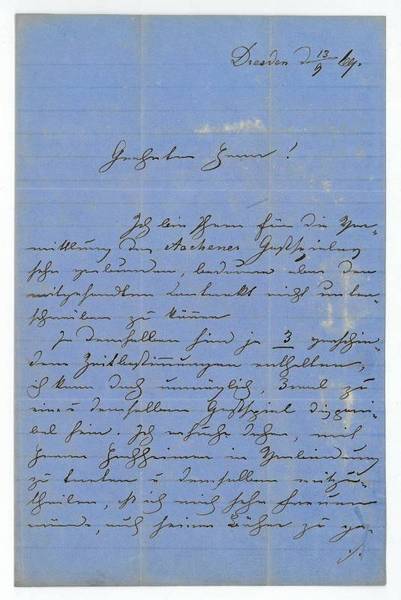 Dresden d 13/9 69.
Geehrter Herr!
Ich bin Ihnen für die Ver-
mittlung des Aachener Gastspieles
sehr verbunden, bedaure aber den
mitgesandten Contrakt nicht unter-
schreiben zu können
In demselben sind ja 3 verschie-
dene Zeitbestimmungen enthalten,
ich kann doch unmöglich, 3mal zu
ein u demselben Gastspiel disponi-
bel sein. Ich ersuche daher, mit
Herrn in Verbindung
zu treten u demselben mitzu-
theilen, daß ich mich sehr freuen
würde, nach seinen zu ga-
./.